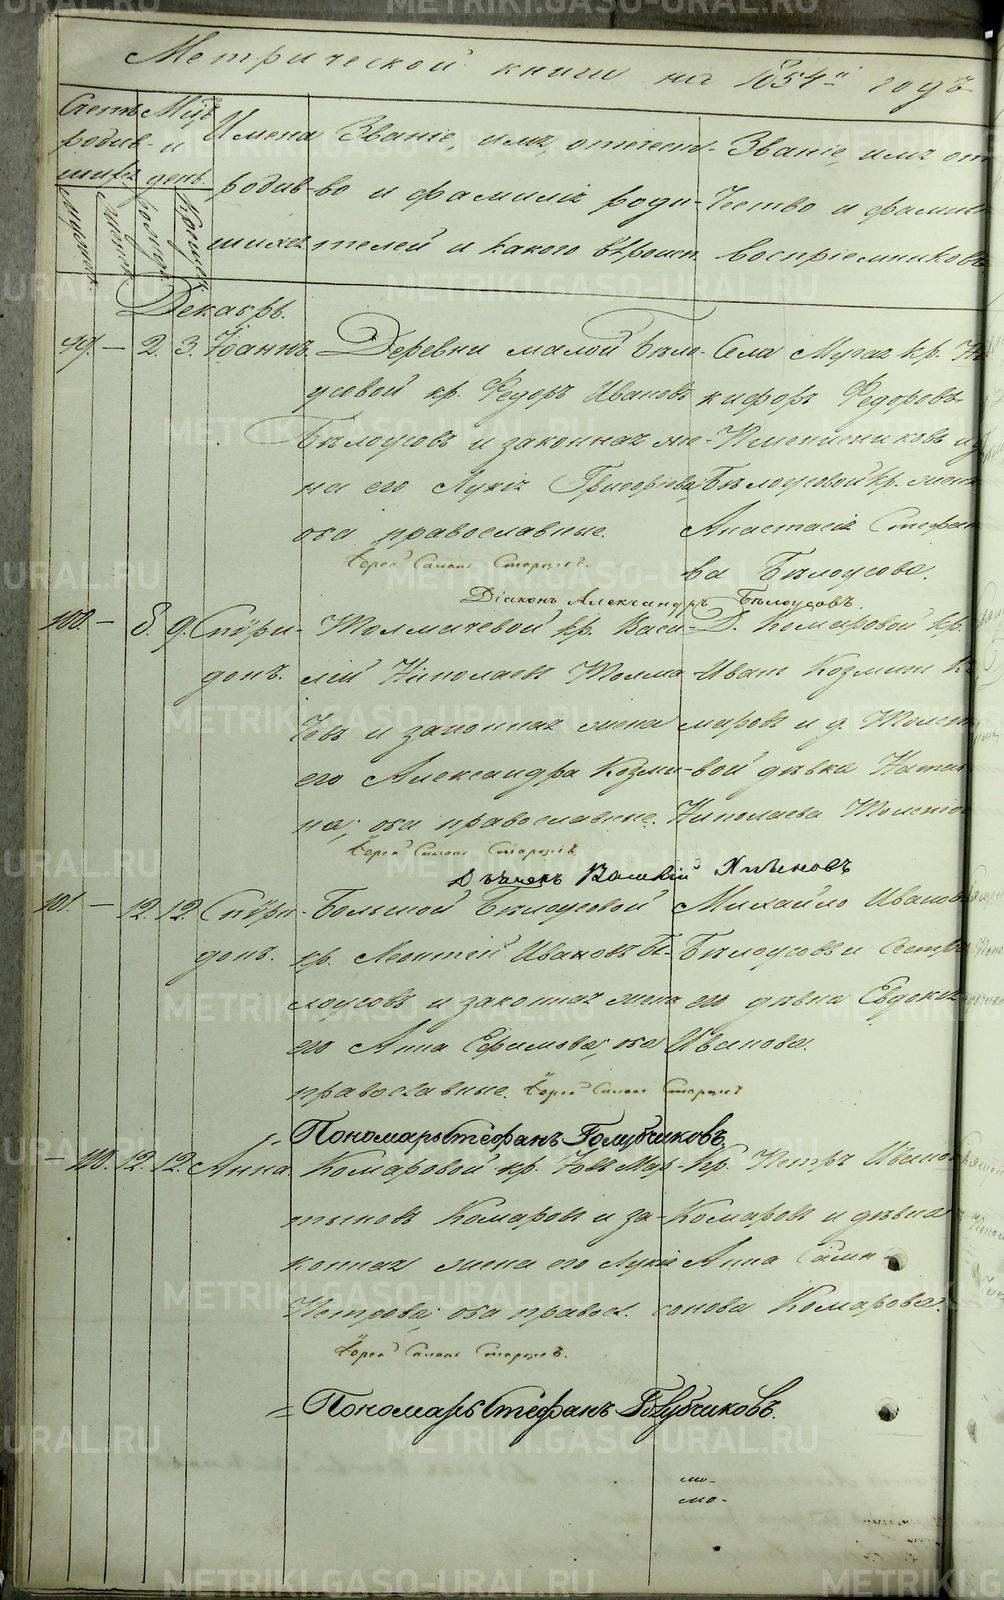 Метрической книги на 1854й годъ
Счетъ родив-шихся
Мужеска
Женска
Мцъ и день.
рожден.
Крещен.
Имена родив-шихся
Званіе, имя, отечест-
во и фамилія роди-
телей и какого вѣроисп.
Званіе, имя, от
чество и фамил
воспріемниковъ
Декабрь.
99. — 2. 3. Іоаннъ.
Деревни малой Бѣло-
усовой кр. Ѳедоръ Ивановъ
Бѣлоусовъ и законная же-
на его Лукія Григорьева
оба православные.
Села Мугая кр. Ни
кифоръ Ѳедоровъ
Именинниковъ и д
Бѣлоусовой кр. жена
Анастасія Стефан
ва Бѣлоусова.
Іерей Старцевъ.
Діаконъ Александръ Бѣлоусовъ.
100. — 8. 9. Спѵри-
донъ.
Толмачевой кр. Васи-
лій Николаевъ Толма
чевъ и законная жена
его Александра Козми-
на; оба православные.
Д. Комаровой кр.
Иванъ Козминъ Ко
маровъ и д. Толст
вой дѣвка Натал
Николаева Толсто
Іерей Старцевъ.
Дьячекъ Хлѣновъ
101. — 12. 12. Спѵри-
донъ.
Большой Бѣлоусовой
кр. Леонтей Ивановъ Бѣ-
лоусовъ и законная жена
его Анна Ефимова; оба
православные.
Михайло Иванов
Бѣлоусовъ и сестра
его дѣвка Евдокія
Иванова.
Іерей Старцевъ
Пономарь Стефанъ Голубчиковъ.
— 110. 12. 12. Анна
Комаровой кр. Мар-
тыновъ Комаровъ и за-
конная жена его Лукія
Петрова; оба правосл.
Кр. Петръ Иванов
Комаровъ и дѣвка
Анна Самп-
сонова Комарова.
Іерей Старцевъ.
Пономарь Стефанъ Голубчиковъ.
METRIKI.GASO-URAL.RU